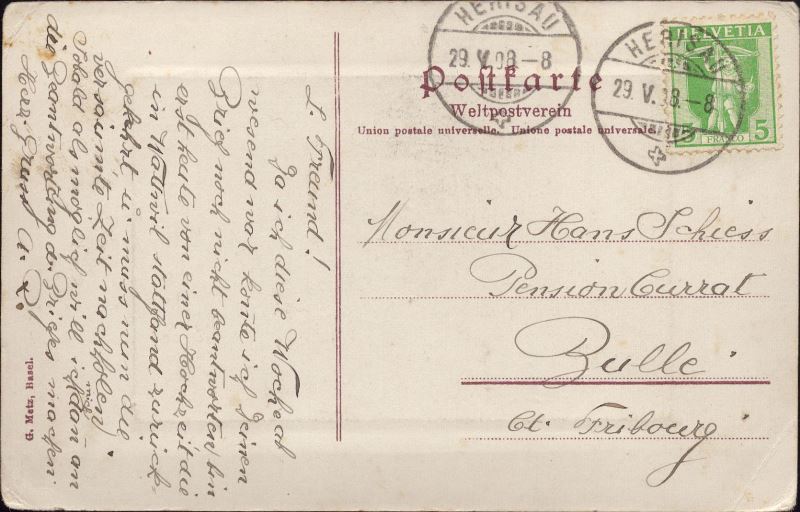 HERISAU
29. V. 08. – 8
HERISAU
29. V. 08. – 8
HELVETIA
5 5
FRANCO
Postkarte
Weltpostverein
Union postale universelle. Unione postale universale.
Monsieur Hans Schiess
Pension Currat
Bulle
Ct. Fribourg
L. Freund!
Da ich diese Woche ab
wesend war konte ich Deinen
Brief noch nicht beantworten, bin
erst heute von einer Hochzeit die
in Wattwil stattfand zurück
gekehrt, u. muss nun die
versäumte Zeit nachholen
Sobald als möglich will ich mich dan an
die Beantwortung d. Briefes machen.
Herz. Gruss
G. Metz, Basel.